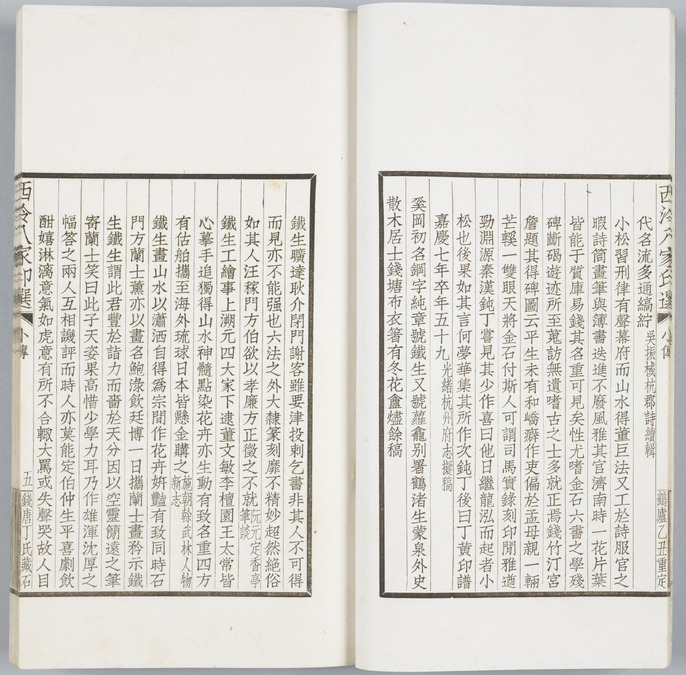 西泠八家印選
小傳
鶴廬乙丑重定
代名流多通縞紵吳振棫杭郡詩續輯
小松習刑律有聲幕府而山水得董巨法又工於詩服官之
暇詩筒畫筆與簿書迭進不廢風雅其官濟南時一花片葉
皆能于質庫易錢其名重可見矣性尤嗜金石六書之學殘
碑斷碣遊迹所至蒐訪無遺嗜古之士多就正焉錢竹汀宮
詹題其得碑圖云平生未有和嶠癖作吏偏於孟母親一輛
芒鞵一雙眼天將金石付斯人可謂司馬實錄刻印閒雅遒
勁淵源秦漢鈍丁嘗見其少作喜曰他日繼龍泓而起者小
松也後果如其言何夢華集其所作次鈍丁後曰丁黃印譜
嘉慶七年卒年五十九光緒杭州府志擬稿
奚岡初名鋼字純章號鐵生又號蘿龕別署鶴渚生蒙泉外史
散木居士錢塘布衣箸有冬花盦燼餘稿
鐵生曠達耿介閉門謝客雖要津投刺乞書非其人不可得
而見亦不能强也六法之外大隸篆刻靡不精妙超然絕俗
如其人汪稼門方伯欲以孝廉方正徵之不就阮元定香亭筆談
鐵生工繪事上溯元四大家下逮董文敏李檀園王太常皆
心摹手追獨得山水神髓點染花卉亦生動有致名重四方
有估舶攜至海外琉球日本皆懸金購之施朝榦武林人物新志
鐵生畫山水以瀟洒自得爲宗間作花卉妍豔有致同時石
門方蘭士薰亦以畫名鮑淥飲廷博一日攜蘭士畫矜示鐵
生鐵生謂此君豐於詣力而嗇於天分因以空靈簡遠之筆
寄蘭士笑曰此子天姿果高惜少學力耳乃作雄渾沈厚之
幅答之兩人互相譏評而時人亦莫能定伯仲生平喜劇飲
酣嬉淋漓意氣如虎意有所不合輒大罵或失聲哭故人目
西泠八家印選
小傳
五
錢唐丁氏藏石